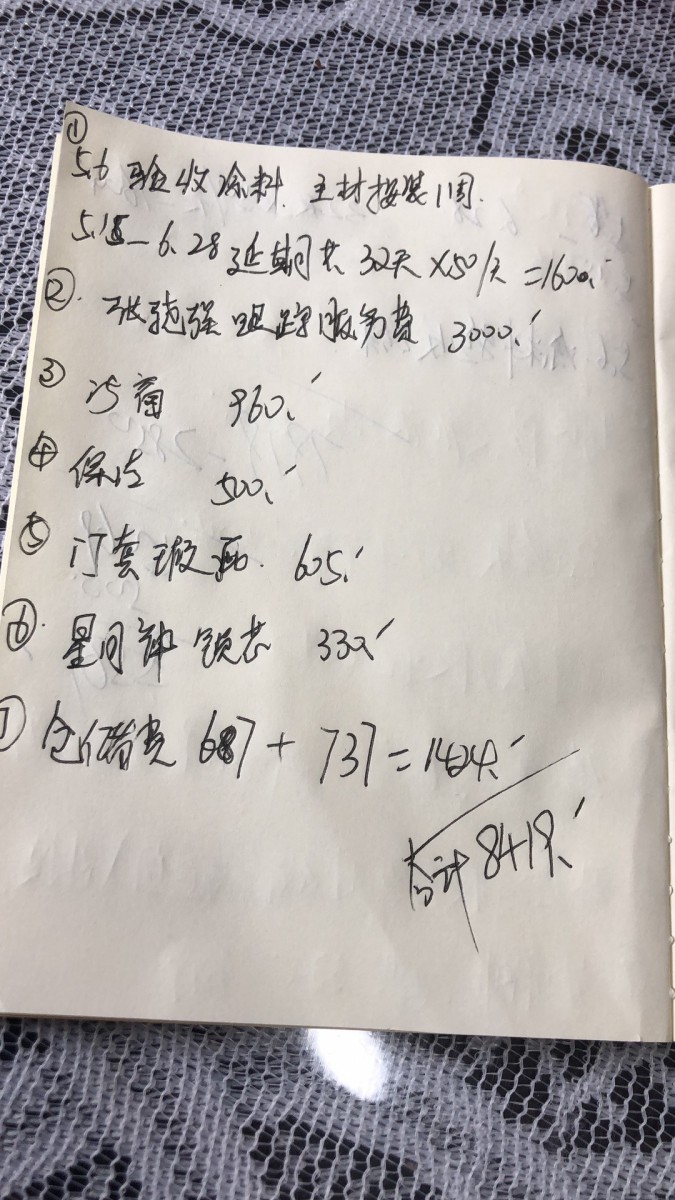 ①
5.6 验收涂料. 主材按装1周.
5.15—6.28延期共 32天×50/天=1600.
②. 张艳强 跟踪服务费 3000.
③ 污 960.
④ 保洁 500.
⑤ 门套 605.
⑥. 星月神 锁芯 330.
⑦ 仓储费 687+737=1424.
合计 8419.